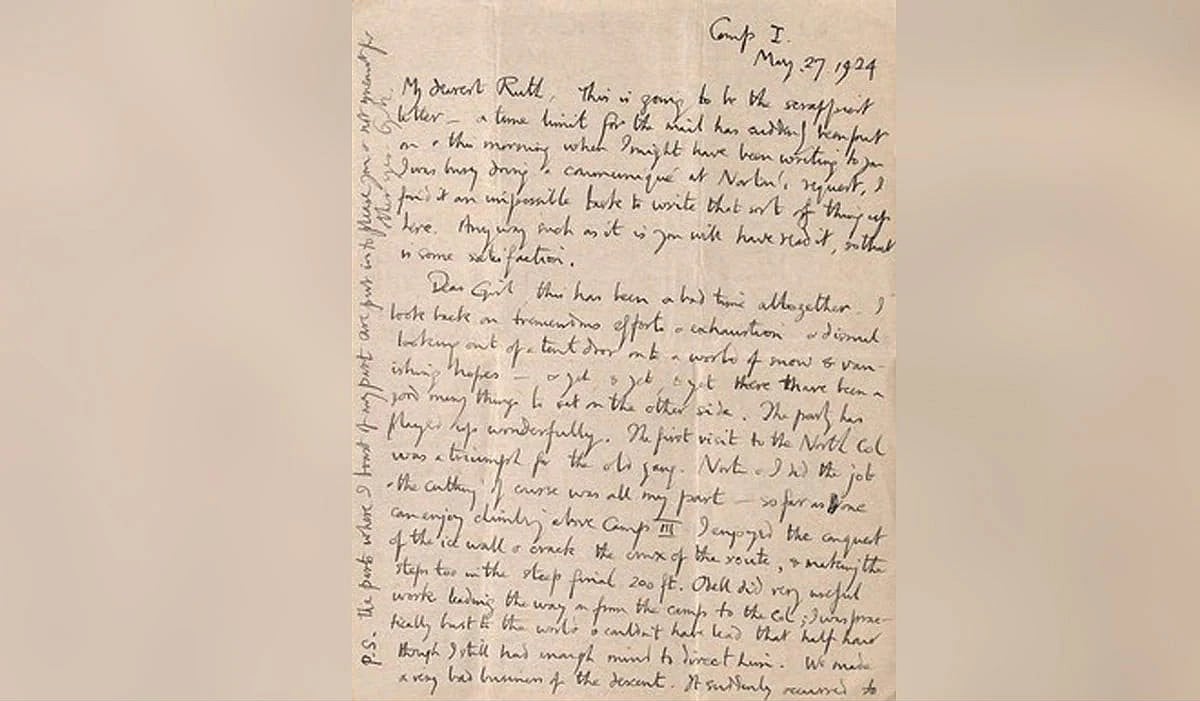 Camp I.
May. 27 1924
My dearest Ruth, This is going to be the scrappiest
letter — a time limit for the mail has suddenly been put
on & this morning when I might have been writing to you
I was busy doing a communiqué at Norton's request, I
find it an impossible task to write that sort of thing up
here. Anyway such as it is you will have read it, so that
is some satisfaction.
Dear Girl, this has been a bad time altogether. I
look back on tremendous efforts & exhaustion & dismal
looking out of a tent door onto a world of snow & van-
ishing hopes — & yet, & yet, & yet there have been a
good many things to set on the other side. The party has
played up wonderfully. The first visit to the North Col
was a triumph for the old gang. Norton & I did the job
& the cutting of course was all my part — so far as one
can enjoy climbing above Camp III I enjoyed the conquest
of the ice wall & crack the crux of the route, & making the
steps too in the steep final 200 ft. Odell did very useful
work leading the way on from the camp to the Col; I was prac-
tically bust to the world & couldn't have lead that half hour
though I still had enough mind to direct him. We made
a very bad business of the descent. It suddenly occurred to
P.S. The parts where I boast of my part are put in to please you & not meant for
other eyes. G.M.